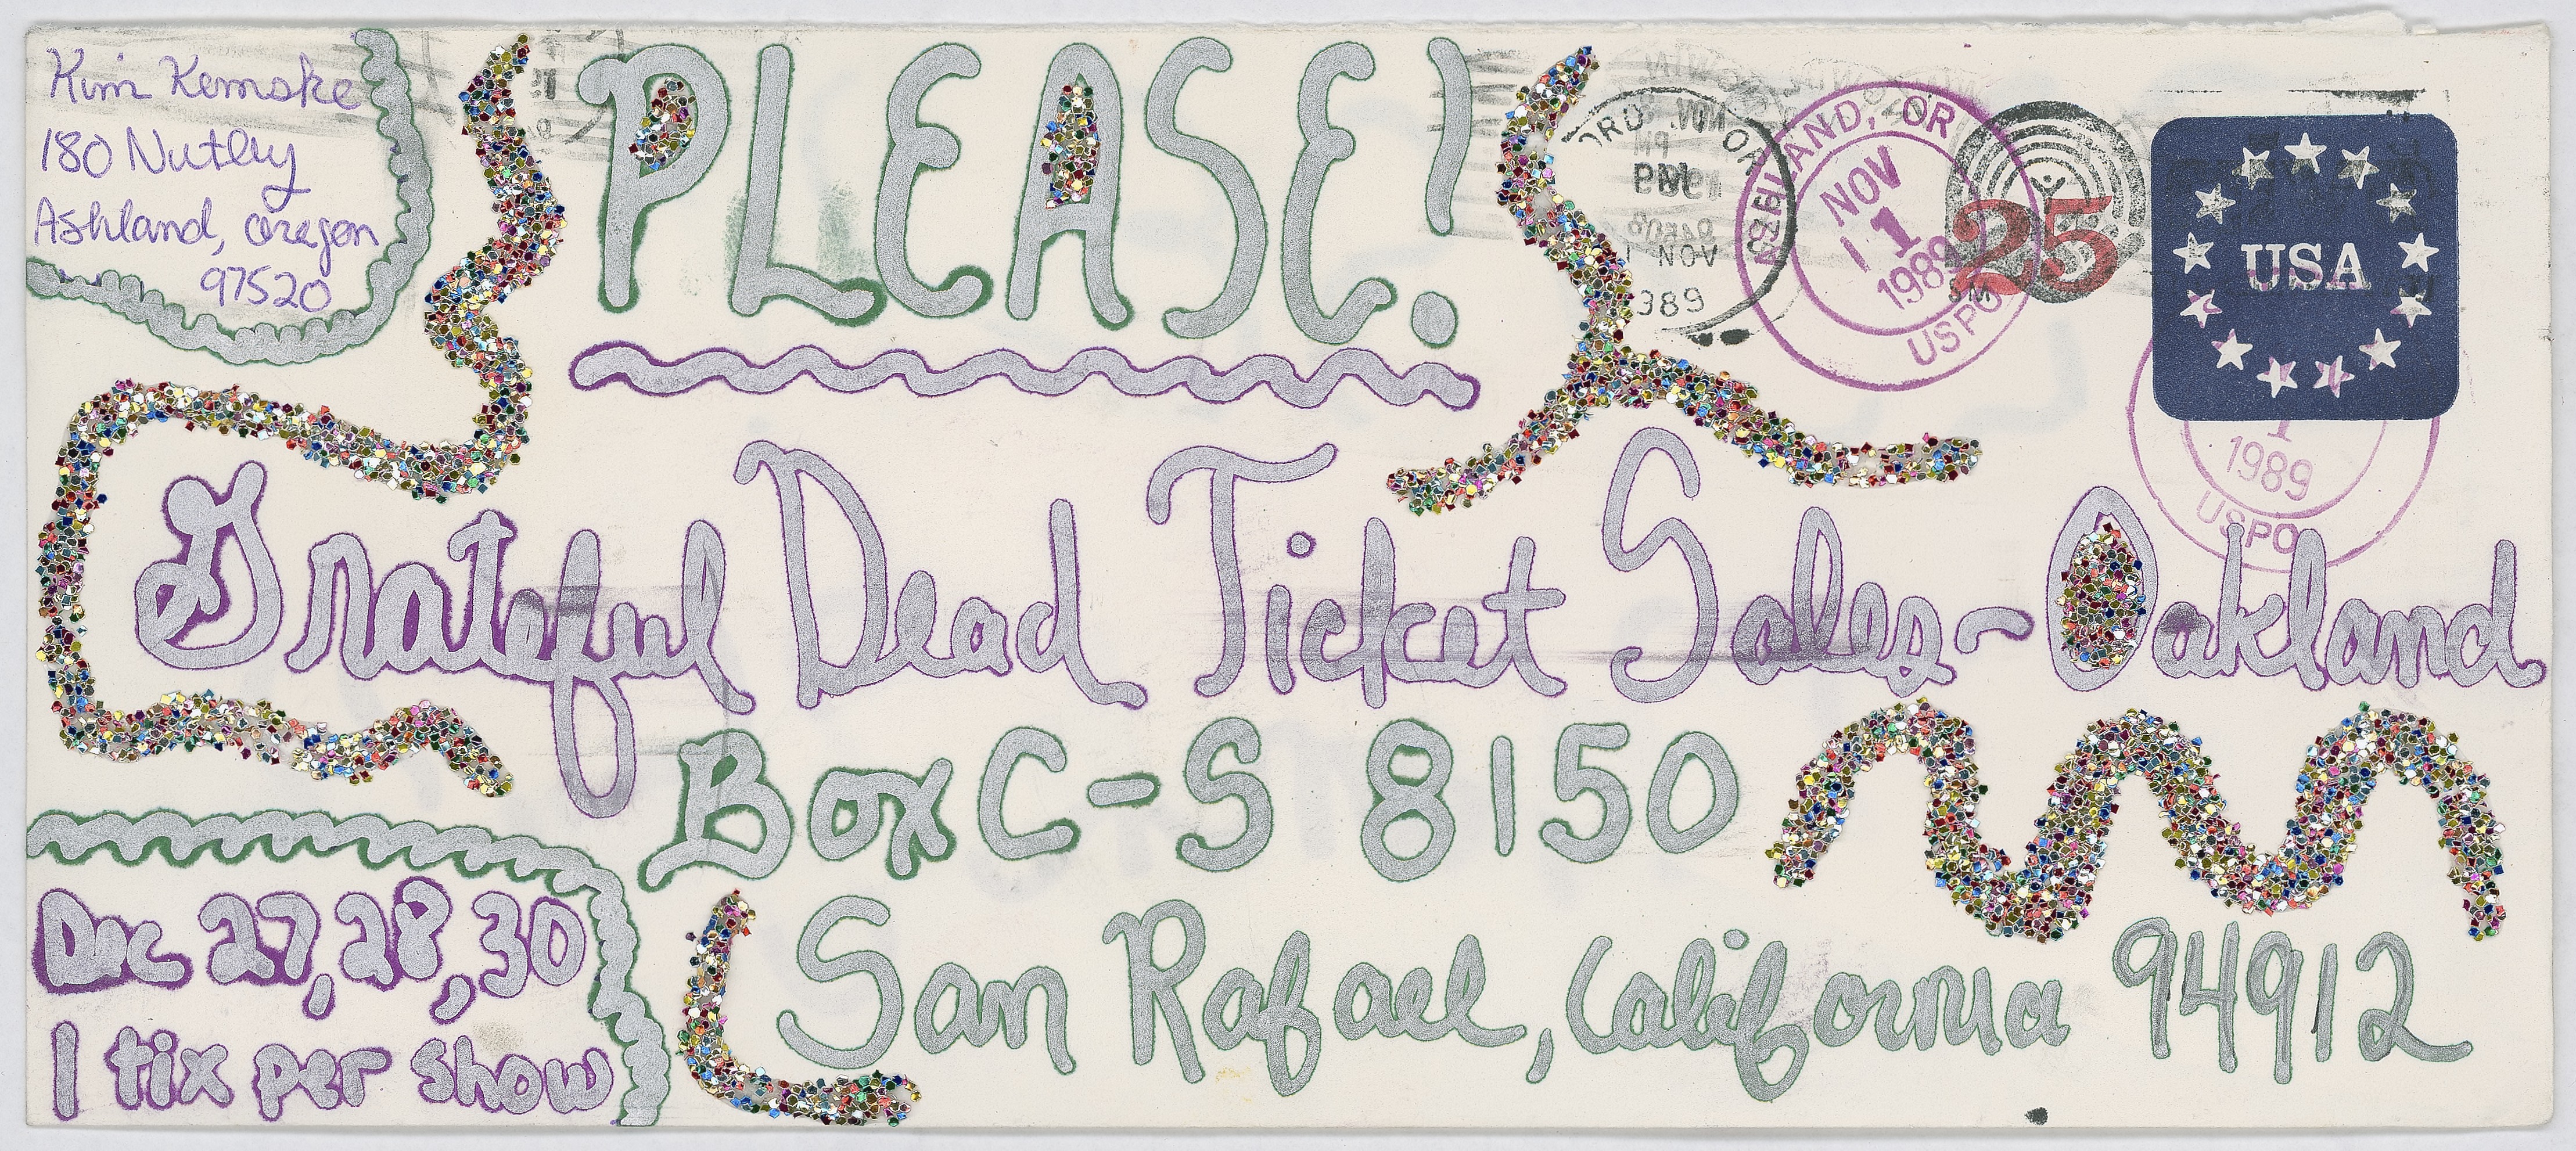 Kim Kemske
180 Nutley
Ashland, oregon
97520
PLEASE!
NOV
1989
ASHLAND, OR
NOV
1
1989
USPO
25
USA
1
1989
USPO
Grateful Dead Ticket Sales - Oakland
Box C-S 8150
San Rafael, California 94912
Dec 27, 28, 30
1 tix per show